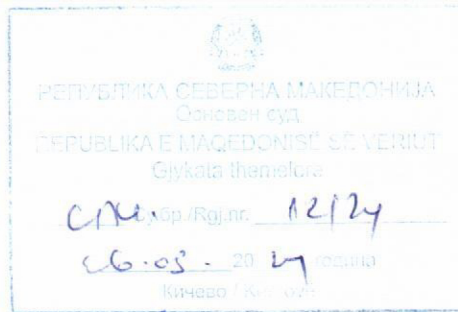 РЕПУБЛИКА СЕВЕРНА МАКЕДОНИЈА
Основен суд
REPUBLIKA E MAQEDONISË SË VERIUT
Gjykata themelore
Су бр./Rgj.nr. 12/24
26.03. 20 24 година
Кичево /